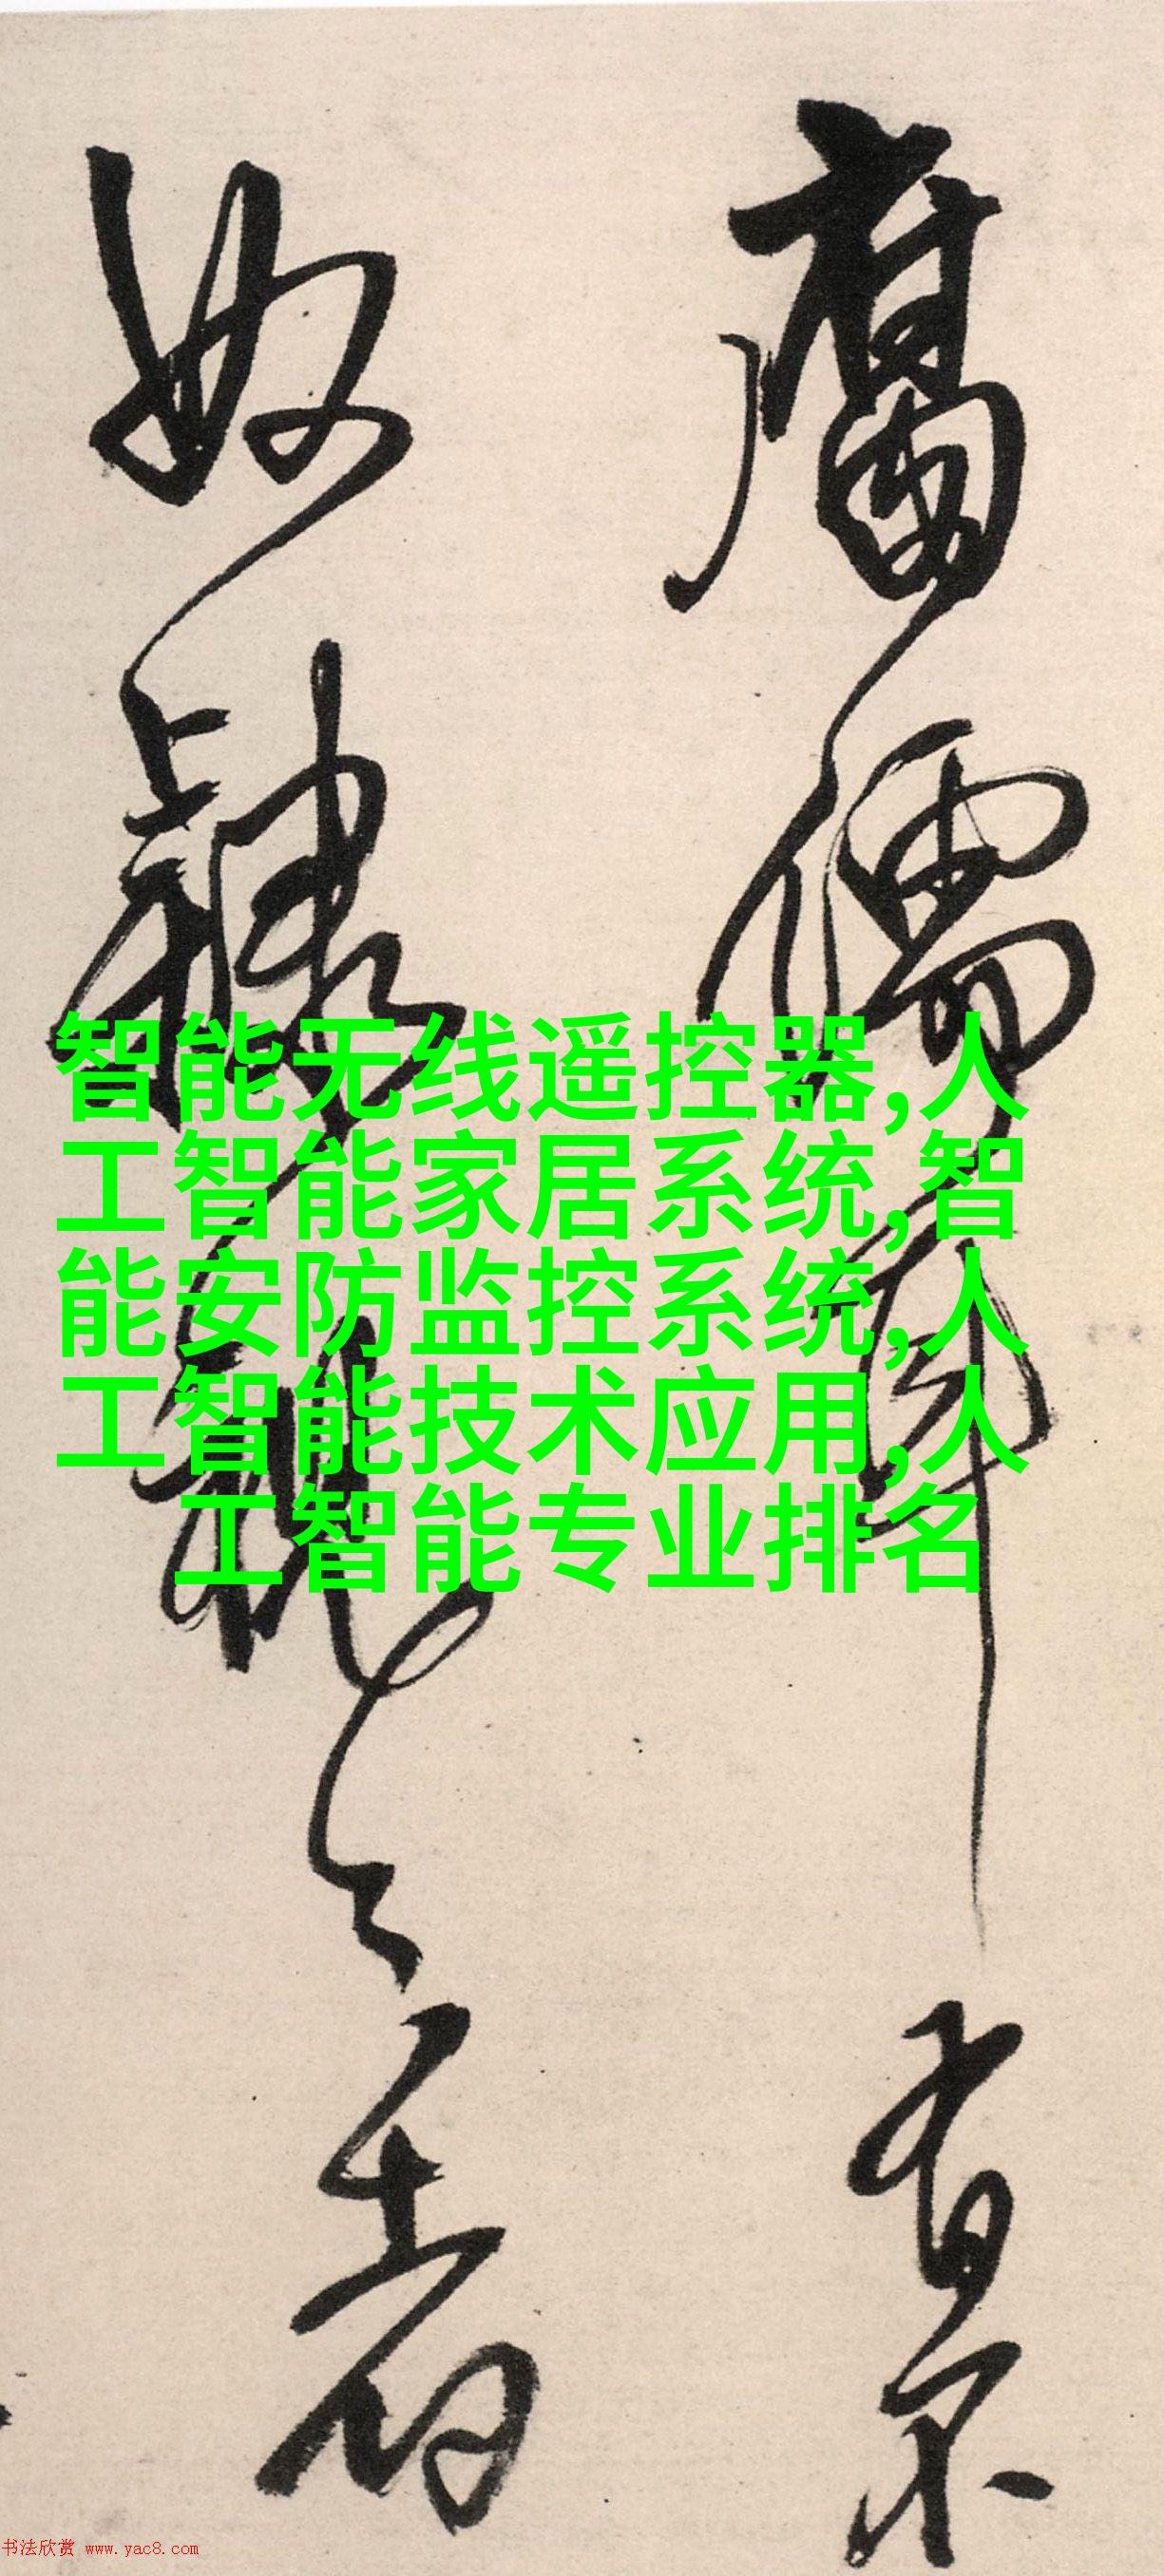 腐儒
有不
如隸
者
智能无线遥控器,人
工智能家居系统,智
能安防监控系统,人
工智能技术应用,人
工智能专业排名
书法欣赏 www.yac8.com